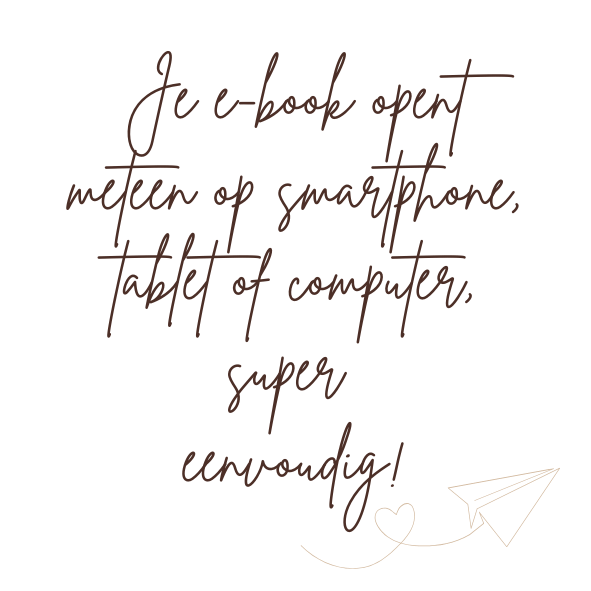 Je e-book opent
meteen op smartphone,
tablet of computer,
super
eenvoudig!